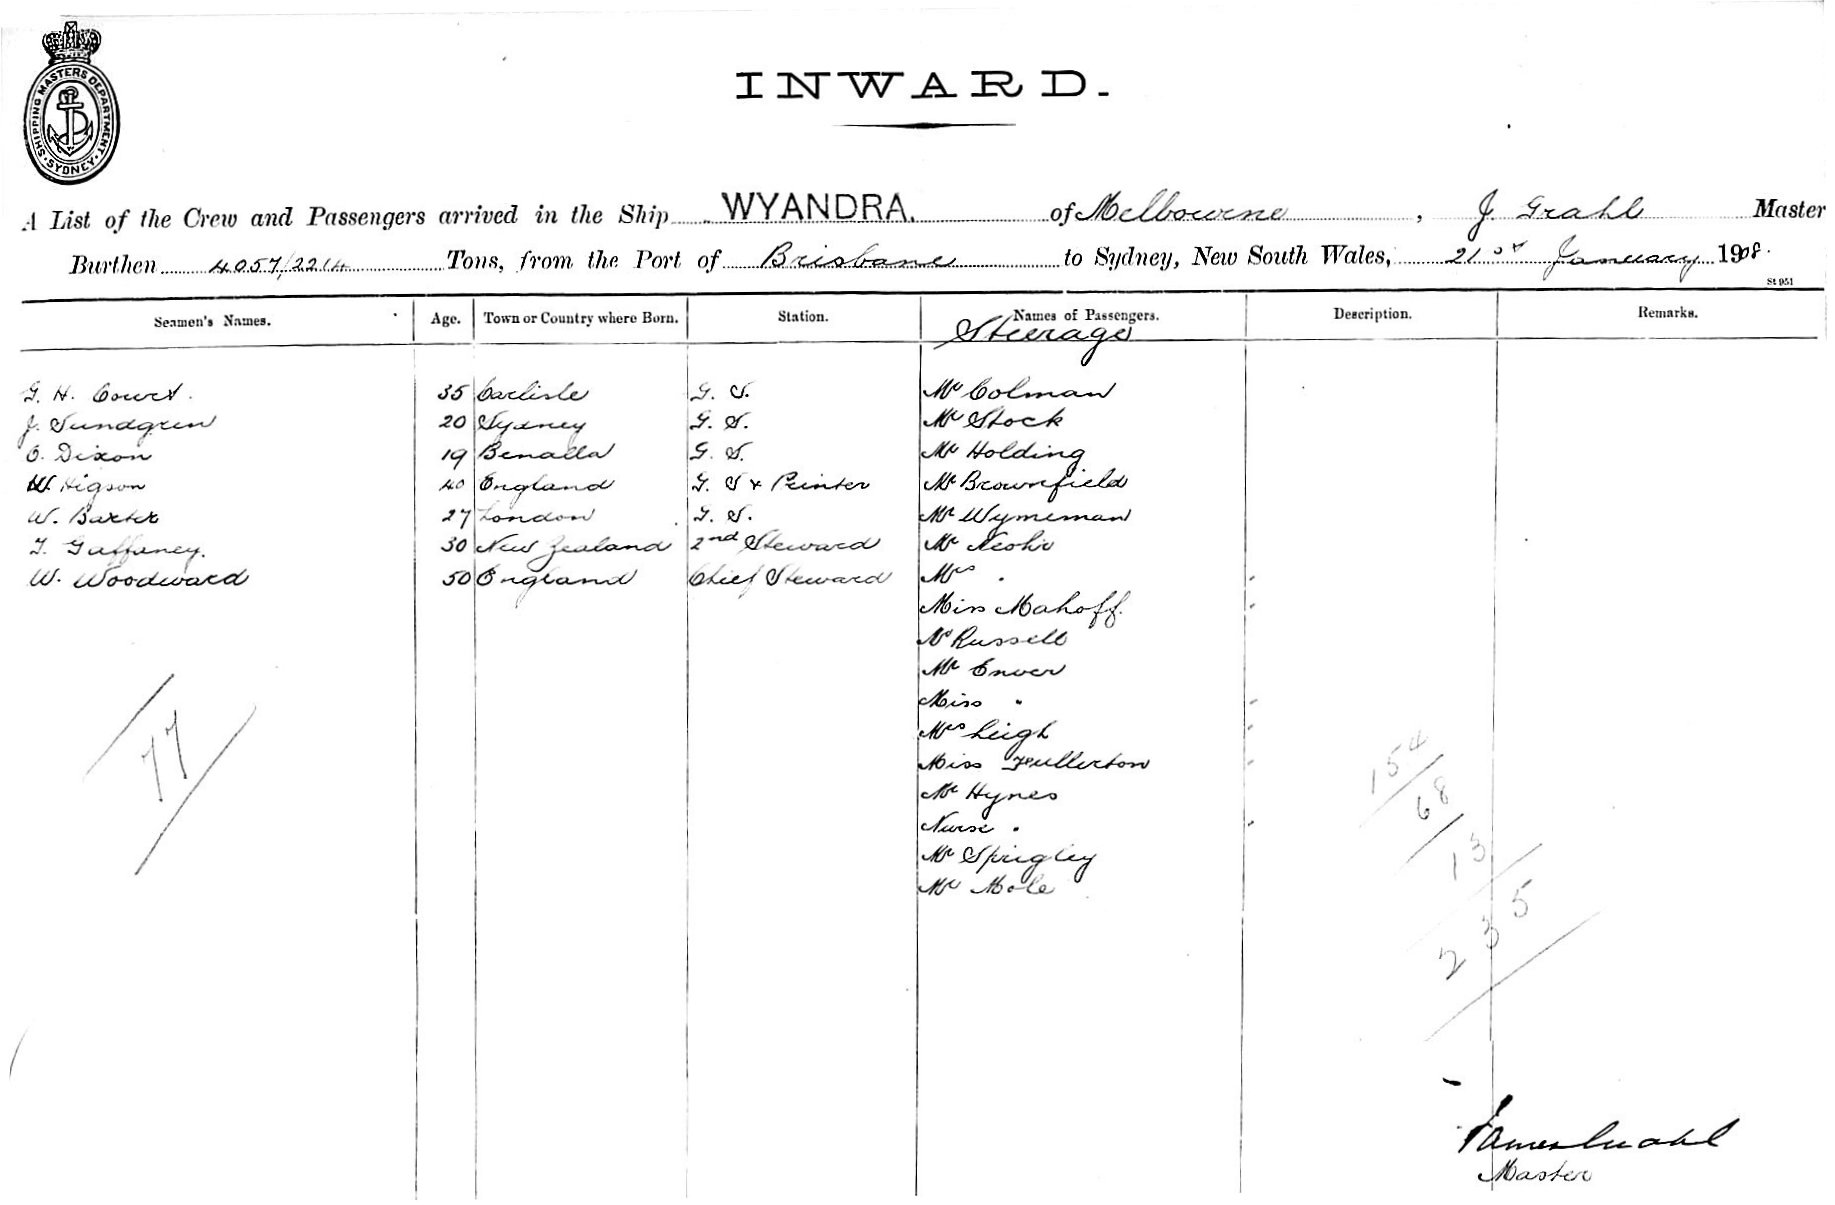 SHIPPING MASTERS DEPARTMENT · SYDNEY ·
INWARD.
A List of the Crew and Passengers arrived in the Ship WYANDRA. of Melbourne, J. Grahl Master
Burthen 4057/2214 Tons, from the Port of Brisbane to Sydney, New South Wales, 21st January 1908.
St 951
Seamen's Names. Age. Town or Country where Born. Station. Names of Passengers. Description. Remarks.
Steerage
G. H. Court. 35 Carlisle G. S. Mr Colman
J. Sundgren 20 Sydney G. S. Mr Stock
Dixon 19 Benalla G. S. Mr Holding
W. Higson 40 England G. S + Printer Mr Brownfield
W. Baxter 27 London G. S. Mr Wymeman
T. Gaffaney. 30 New Zealand 2nd Steward Mr
W. Woodward 50 England Chief Steward Mrs "
Miss Mahoff.
Mr Russell
Mr Enver
Miss "
Mrs Leigh
Miss Fullerton
Mr Hynes
Nurse "
Mr Sprigley
Mr Mole
77
154
68
13
235
James Grahl
Master